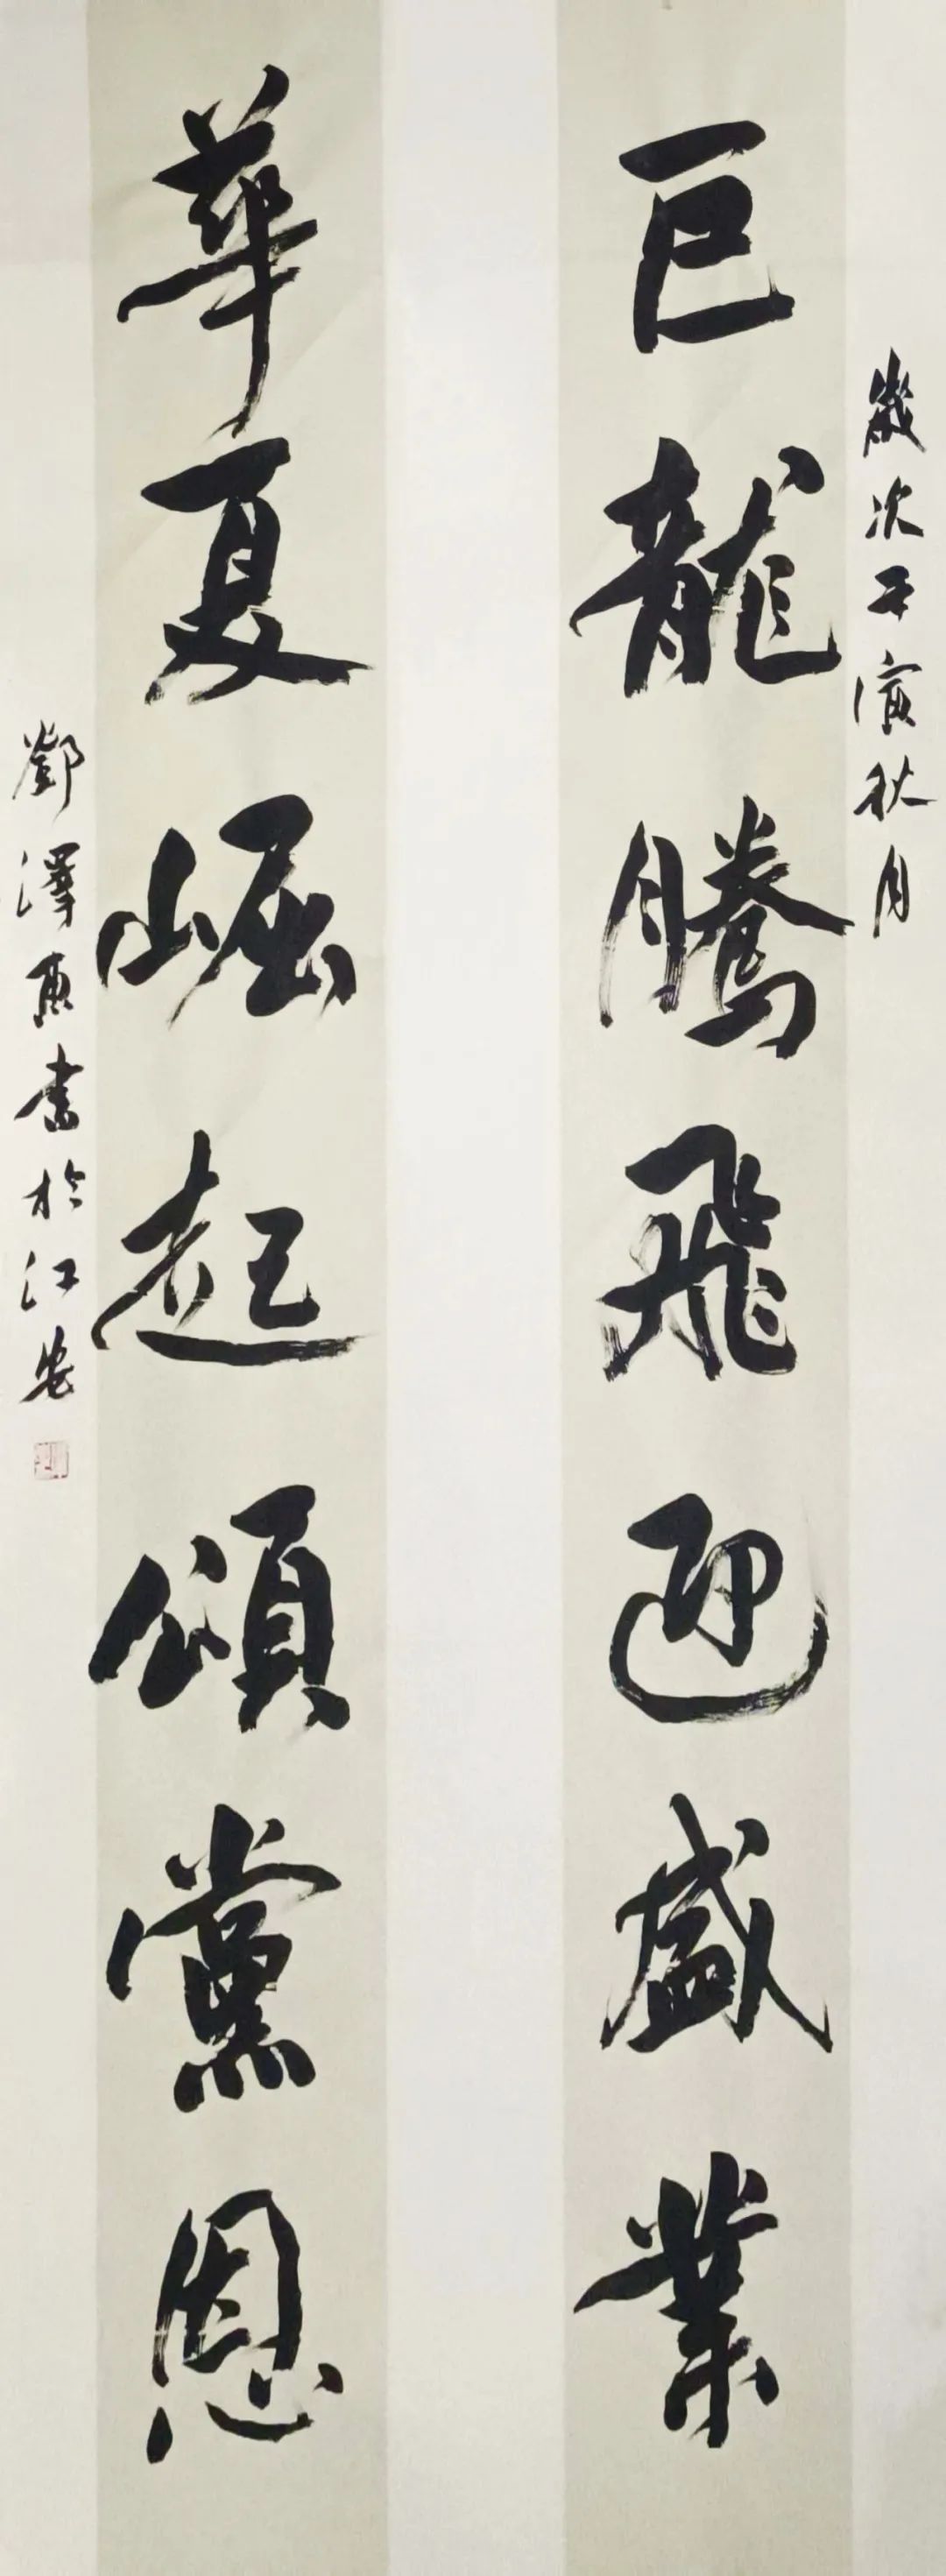 歲次壬寅秋月
巨龍騰飛迎盛業
華夏崛起頌黨恩
鄧澤惠書於江安